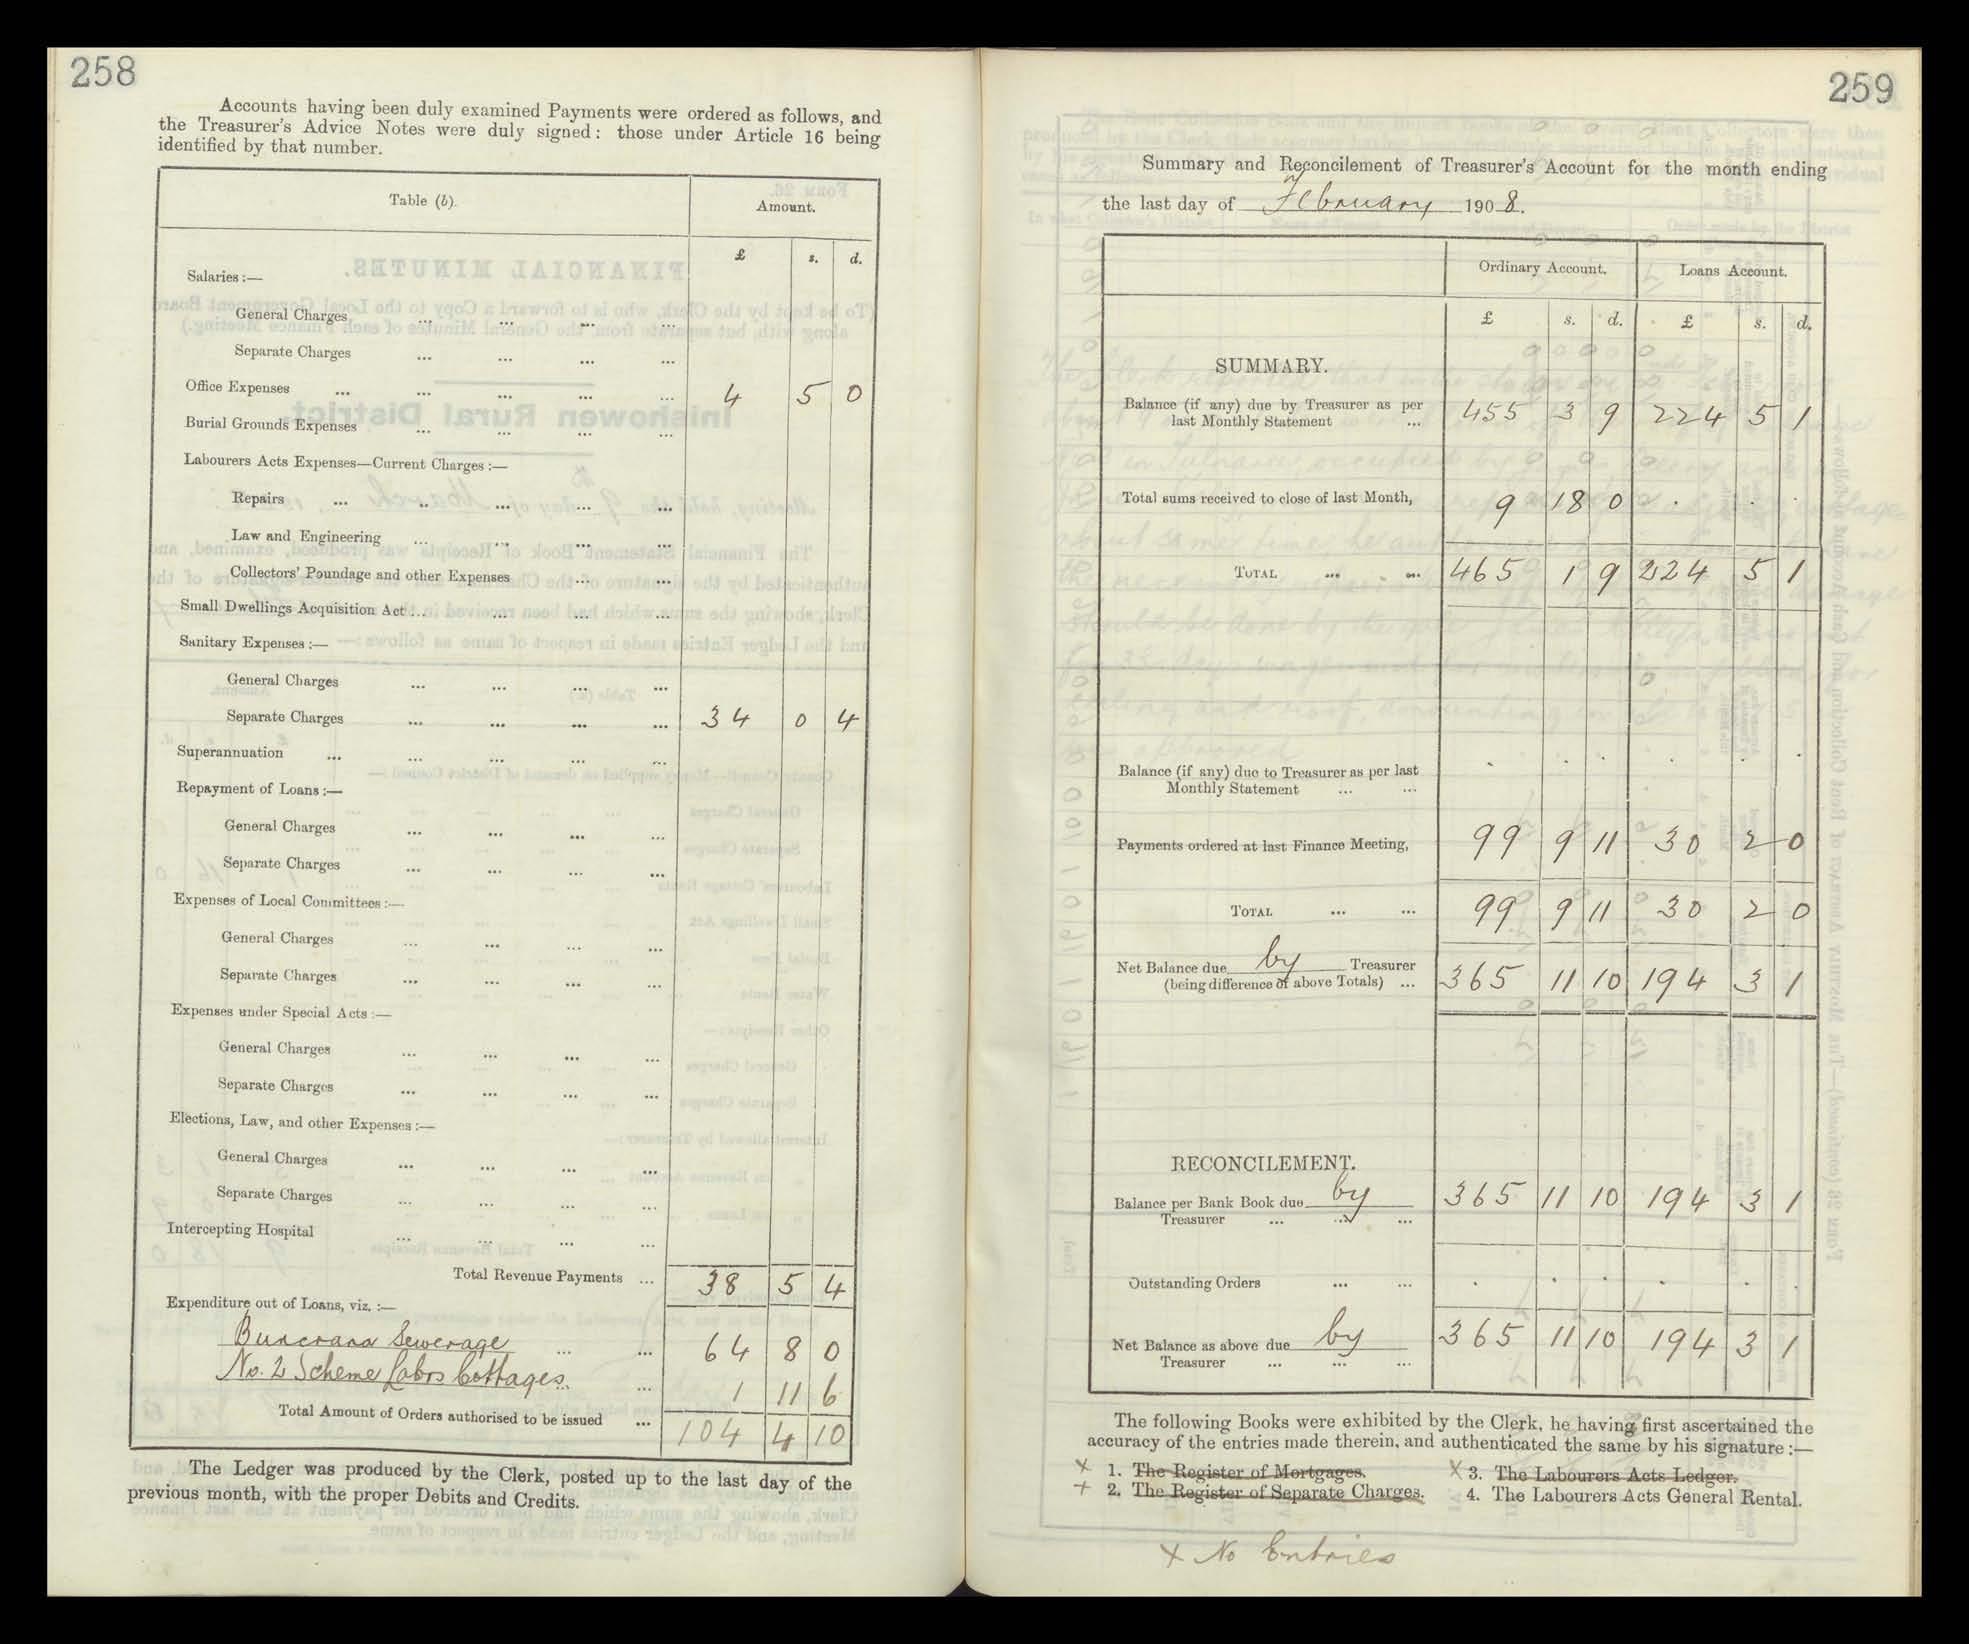 258
Accounts having been duly examined Payments were ordered as follows, and
the Treasurer's Advice Notes were duly signed: those under Article 16 being
identified by that number.
Table (b). Amount.
£ s. d.
Salaries :—
General Charges ... ... ... ...
Separate Charges ... ... ... ...
Office Expenses ... ... ... ... ... 4 5 0
Burial Grounds Expenses ... ... ... ...
Labourers Acts Expenses—Current Charges :—
Repairs ... ... ... ... ...
Law and Engineering ... ... ... ...
Collectors' Poundage and other Expenses ... ...
Small Dwellings Acquisition Act ... ... ... ...
Sanitary Expenses :—
General Charges ... ... ... ...
Separate Charges ... ... ... ... 34 0 4
Superannuation ... ... ... ... ...
Repayment of Loans :—
General Charges ... ... ... ...
Separate Charges ... ... ... ...
Expenses of Local Committees :—
General Charges ... ... ... ...
Separate Charges ... ... ... ...
Expenses under Special Acts :—
General Charges ... ... ... ...
Separate Charges ... ... ... ...
Elections, Law, and other Expenses :—
General Charges ... ... ... ...
Separate Charges ... ... ... ...
Intercepting Hospital ... ... ... ...
Total Revenue Payments ... 38 5 4
Expenditure out of Loans, viz. :—
Buncrana Sewerage ... ... 64 8 0
No. 2 Scheme Labrs Cottages. ... ... 1 11 6
Total Amount of Orders authorised to be issued ... 104 4 10
The Ledger was produced by the Clerk, posted up to the last day of the
previous month, with the proper Debits and Credits.
259
Summary and Reconcilement of Treasurer's Account for the month ending
the last day of February 1908.
Ordinary Account. Loans Account.
£ s. d. £ s. d.
SUMMARY.
Balance (if any) due by Treasurer as per
last Monthly Statement ... 455 3 9 224 5 1
Total sums received to close of last Month, 9 18 0 . . .
TOTAL ... ... 465 1 9 224 5 1
Balance (if any) due to Treasurer as per last
Monthly Statement ... ... . . . . . .
Payments ordered at last Finance Meeting, 99 9 11 30 2 0
TOTAL ... ... 99 9 11 30 2 0
Net Balance due by Treasurer
(being difference of above Totals) ... 365 11 10 194 3 1
RECONCILEMENT.
Balance per Bank Book due by
Treasurer ... ... ... 365 11 10 194 3 1
Outstanding Orders ... ... . . . . . .
Net Balance as above due by
Treasurer ... ... ... 365 11 10 194 3 1
The following Books were exhibited by the Clerk, he having first ascertained the
accuracy of the entries made therein, and authenticated the same by his signature :—
x 1. The Register of Mortgages. x 3. The Labourers Acts Ledger.
+ 2. The Register of Separate Charges. 4. The Labourers Acts General Rental.
x No Entries